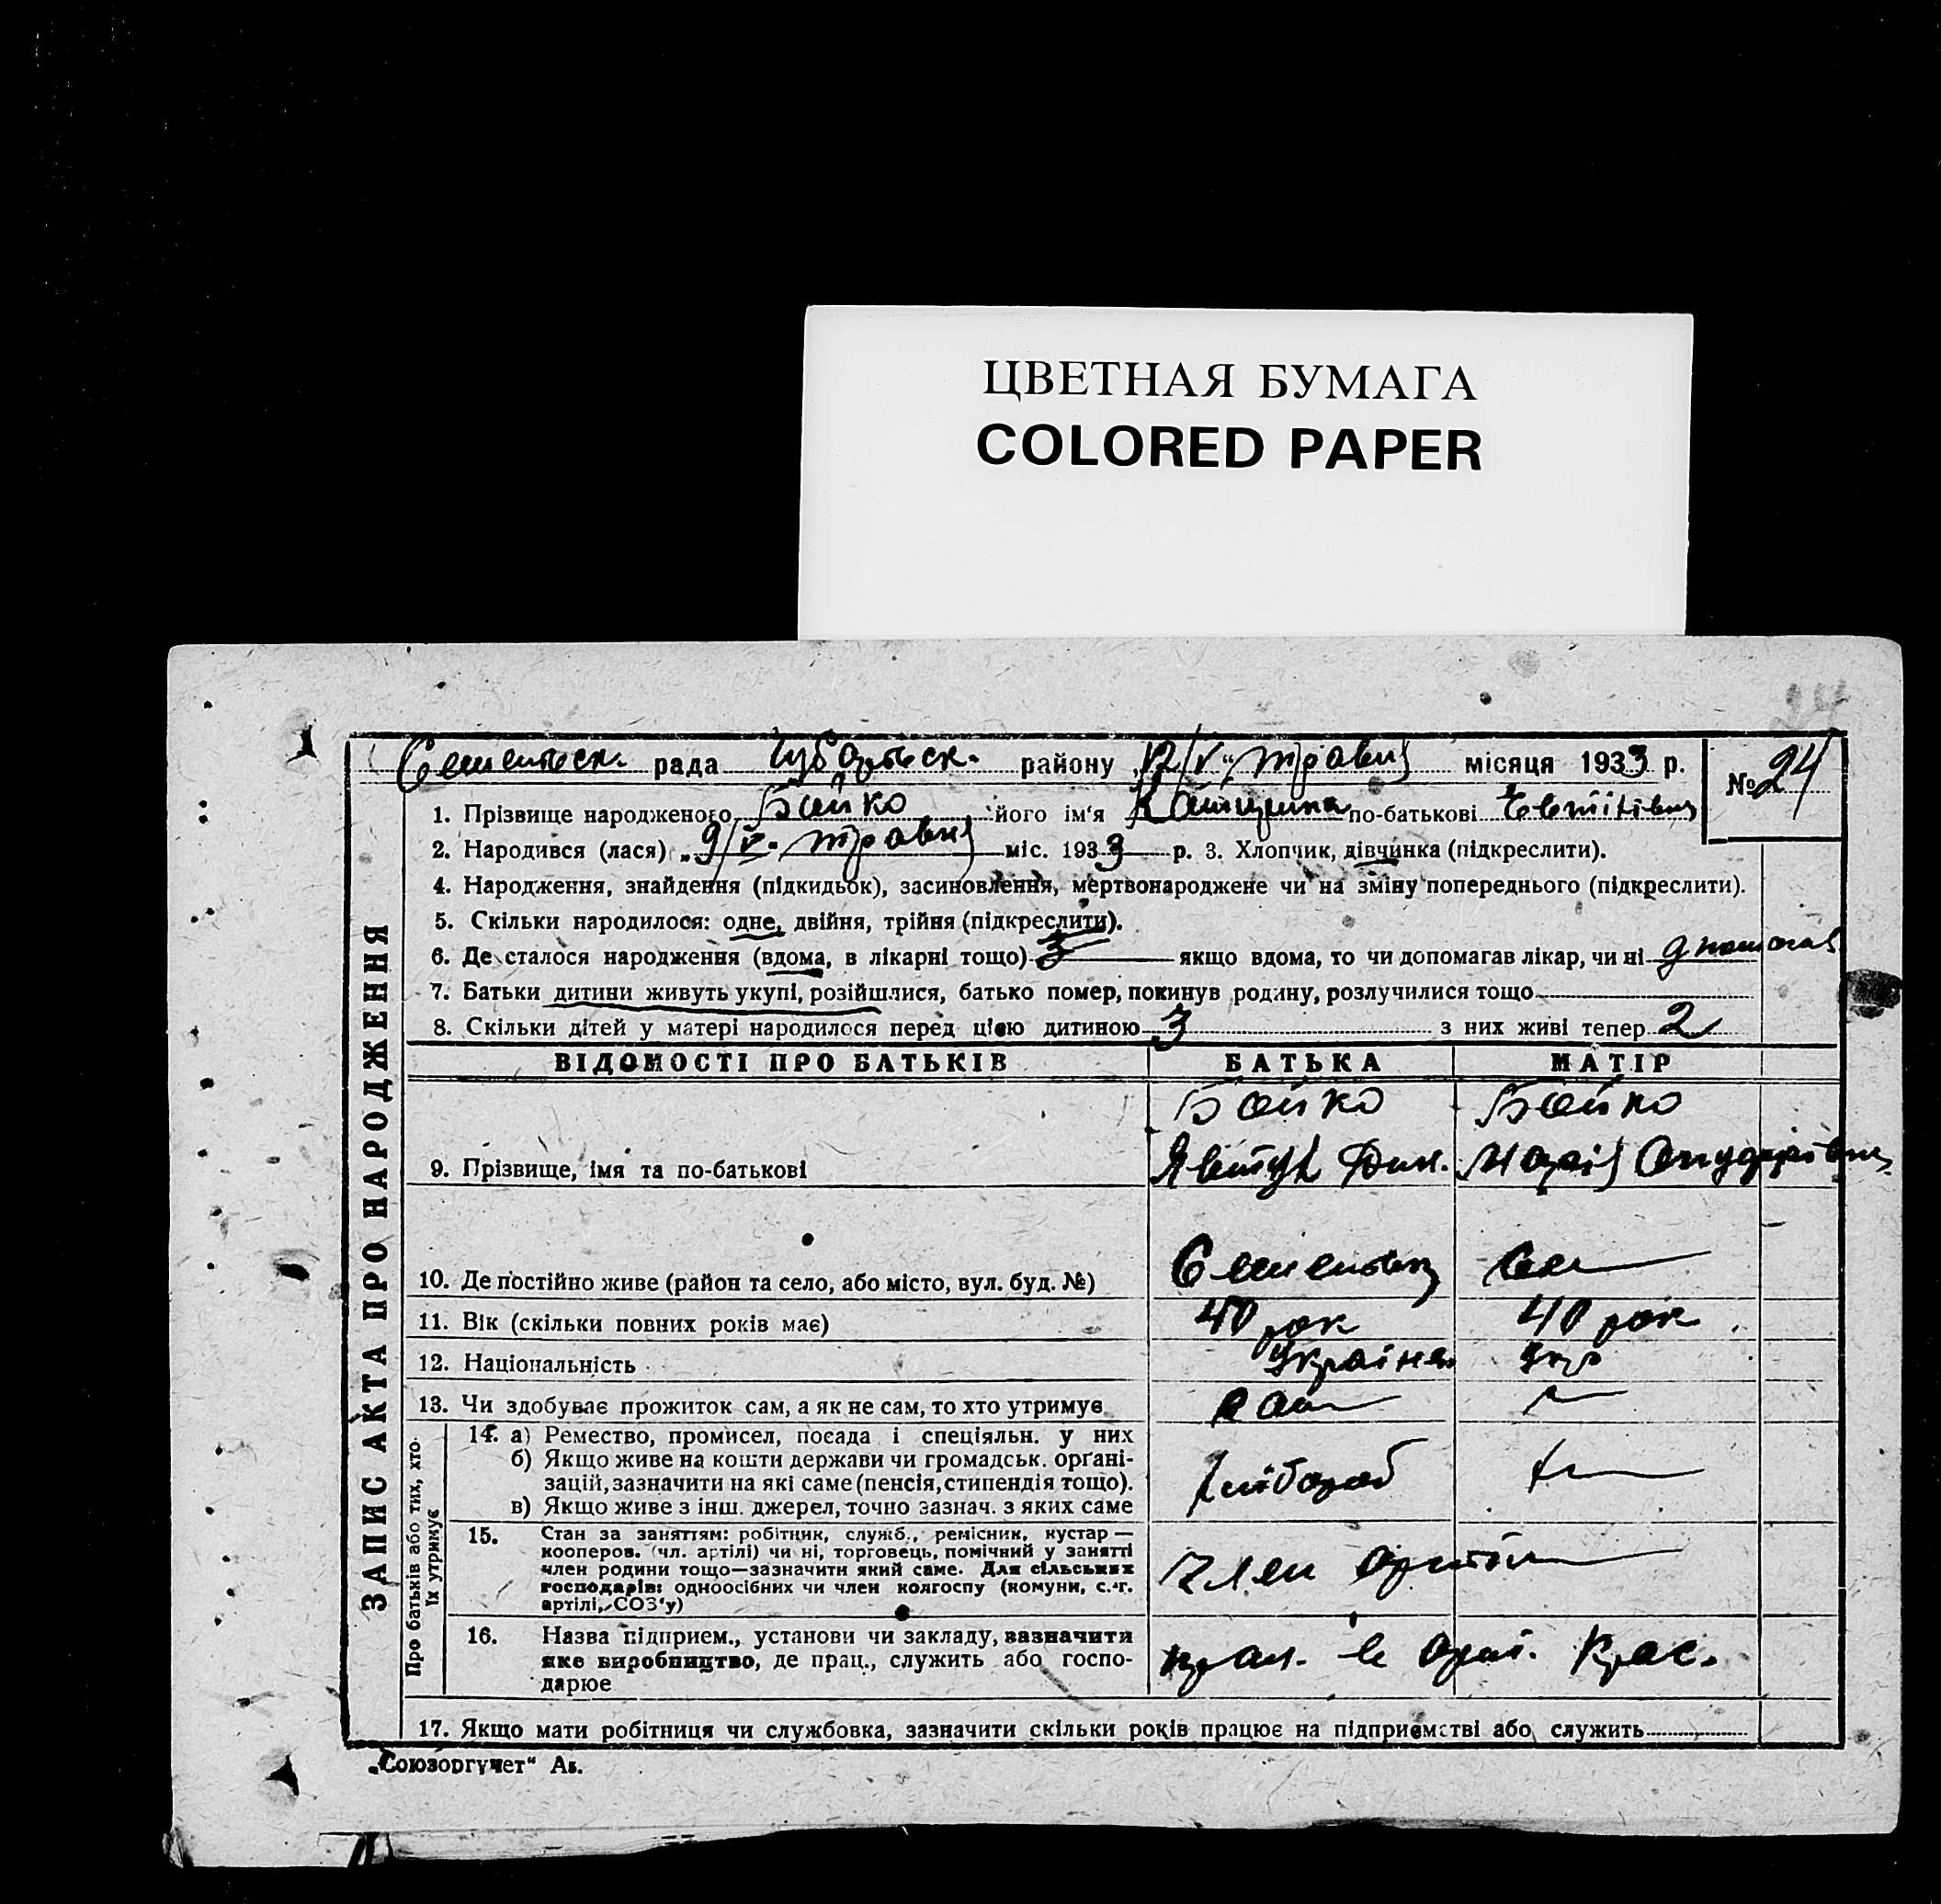 ЦВЕТНАЯ БУМАГА
COLORED PAPER
24
рада Чубарьск. району 12/V "травня місяця 1933 р. № 24
1. Прізвище народженого Бойко його ім'я по-батькові
2. Народився (лася) „9/V" травня міс. 1933 р. 3. Хлопчик, дівчинка (підкреслити).
4. Народження, знайдення (підкидьок), засиновлення, мертвонароджене чи на зміну попереднього (підкреслити).
5. Скільки народилося: одне, двійня, трійня (підкреслити).
6. Де сталося народження (вдома, в лікарні тощо) 3 якщо вдома, то чи допомагав лікар, чи ні
7. Батьки дитини живуть укупі, розійшлися, батько помер, покинув родину, розлучилися тощо
8. Скільки дітей у матері народилося перед цією дитиною 3 з них живі тепер 2
ВІДОМОСТІ ПРО БАТЬКІВ БАТЬКА МАТІР
Бойко Бойко
9. Прізвище, імя та по-батькові Явтух Марія
10. Де постійно живе (район та село, або місто, вул. буд. №)
11. Вік (скільки повних років має) 40 рок 40 рок
12. Національність Українец Укр
13. Чи здобуває прожиток сам, а як не сам, то хто утримує сам
14. а) Ремество, промисел, посада і спеціяльн. у них
б) Якщо живе на кошти держави чи громадськ. орґані-
зацій, зазначити на які саме (пенсія, стипендія тощо). хлібороб
в) Якщо живе з інш. джерел, точно зазнач. з яких саме
15. Стан за заняттям: робітник, служб., ремісник, кустар—
кооперов. (чл. артілі) чи ні, торговець, помічний у занятті
член родини тощо—зазначити який саме. Для сільських
господарів: одноосібних чи член колгоспу (комуни, с.-г.
артілі, СОЗ'у) член артіл
16. Назва підприєм., установи чи закладу, зазначити
яке виробництво, де прац., служить або госпо- прац. в арт. Крас.
дарює
17. Якщо мати робітниця чи службовка, зазначити скільки років працює на підприємстві або служить
ЗАПИС АКТА ПРО НАРОДЖЕННЯ
Про батьків або тих, хто
їх утримує
„Союзоргучет"